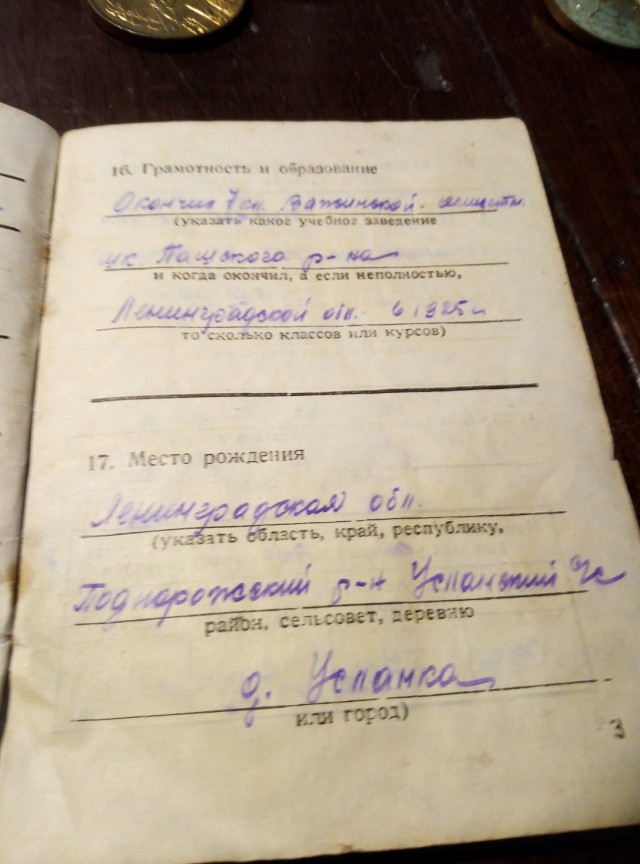 16. Грамотность и образование
Окончил 7 кл. Важинской
(указать какое учебное заведение
шк Пашского р-на
и когда окончил, а если неполностью,
Ленинградской обл. в 1925г
то сколько классов или курсов)
17. Место рождения
Ленинградская обл.
(указать область, край, республику,
Поднарожский р-н Успанский с/с
район, сельсовет, деревню
д. Успанка
или город)
3